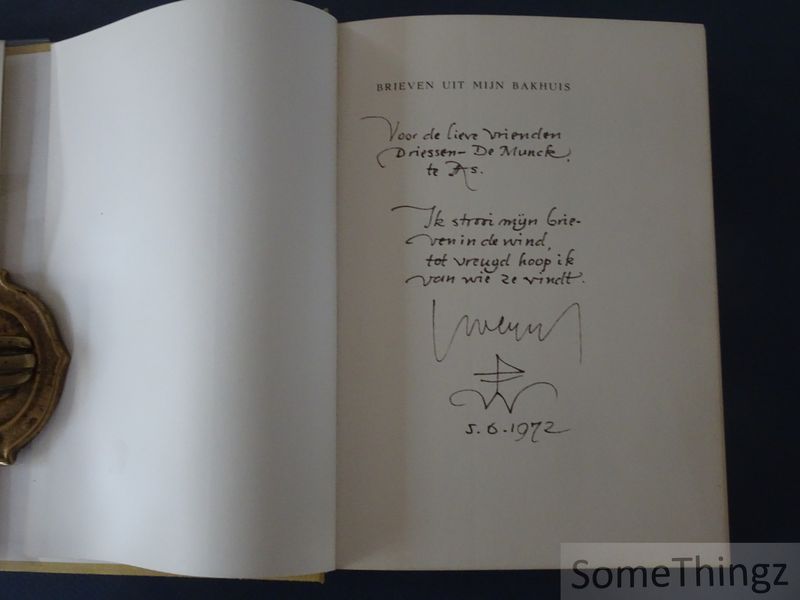 BRIEVEN UIT MIJN BAKHUIS
Voor de lieve vrienden
Driessen-De Munck,
te As.
Ik strooi mijn brie-
ven in de wind,
tot vreugd hoop ik
van wie ze vindt.
5.6.1972
SomeThingz